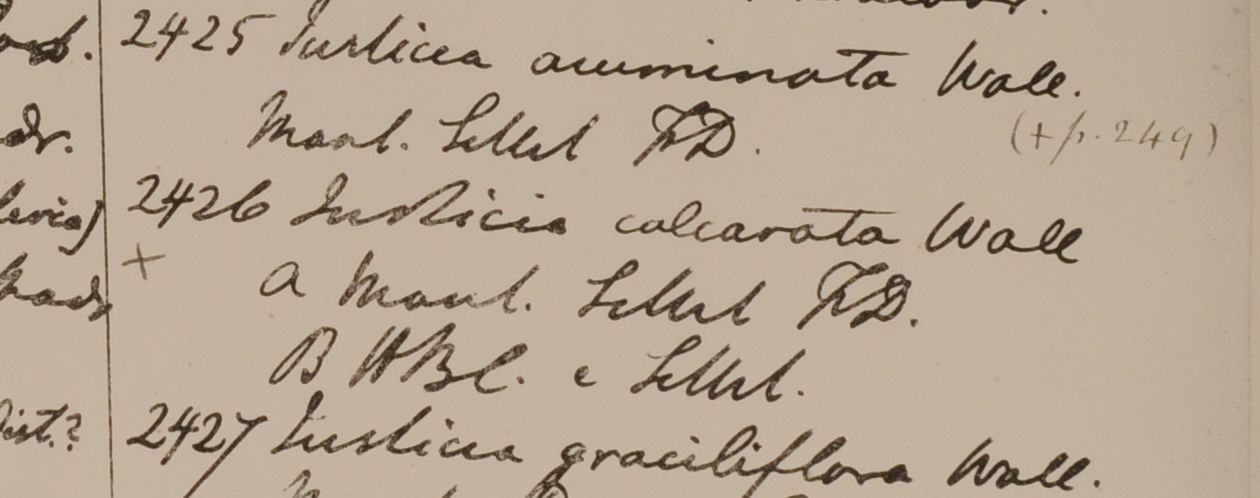 2425 Justicia acuminata Wall.
Mont. Sillet F.D. (+ p. 249)
2426 Justicia calcarata Wall
+
a Mont. Sillet F.D.
B HBC. e Sillet.
2427 Justicia graciliflora Wall.
dr.
ist.?